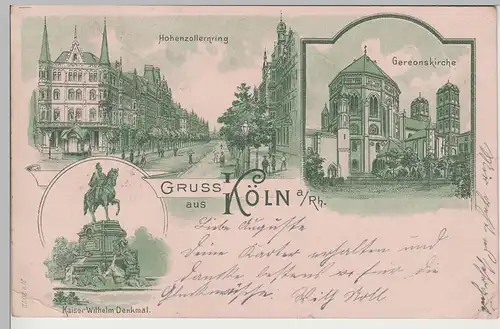 Hohenzollernring
Gereonskirche
GRUSS
aus KÖLN a/Rh.
Kaiser Wilhelm Denkmal.
Liebe Auguste
Deine Karten erhalten und
danke bestens für die
Glückwünsche.